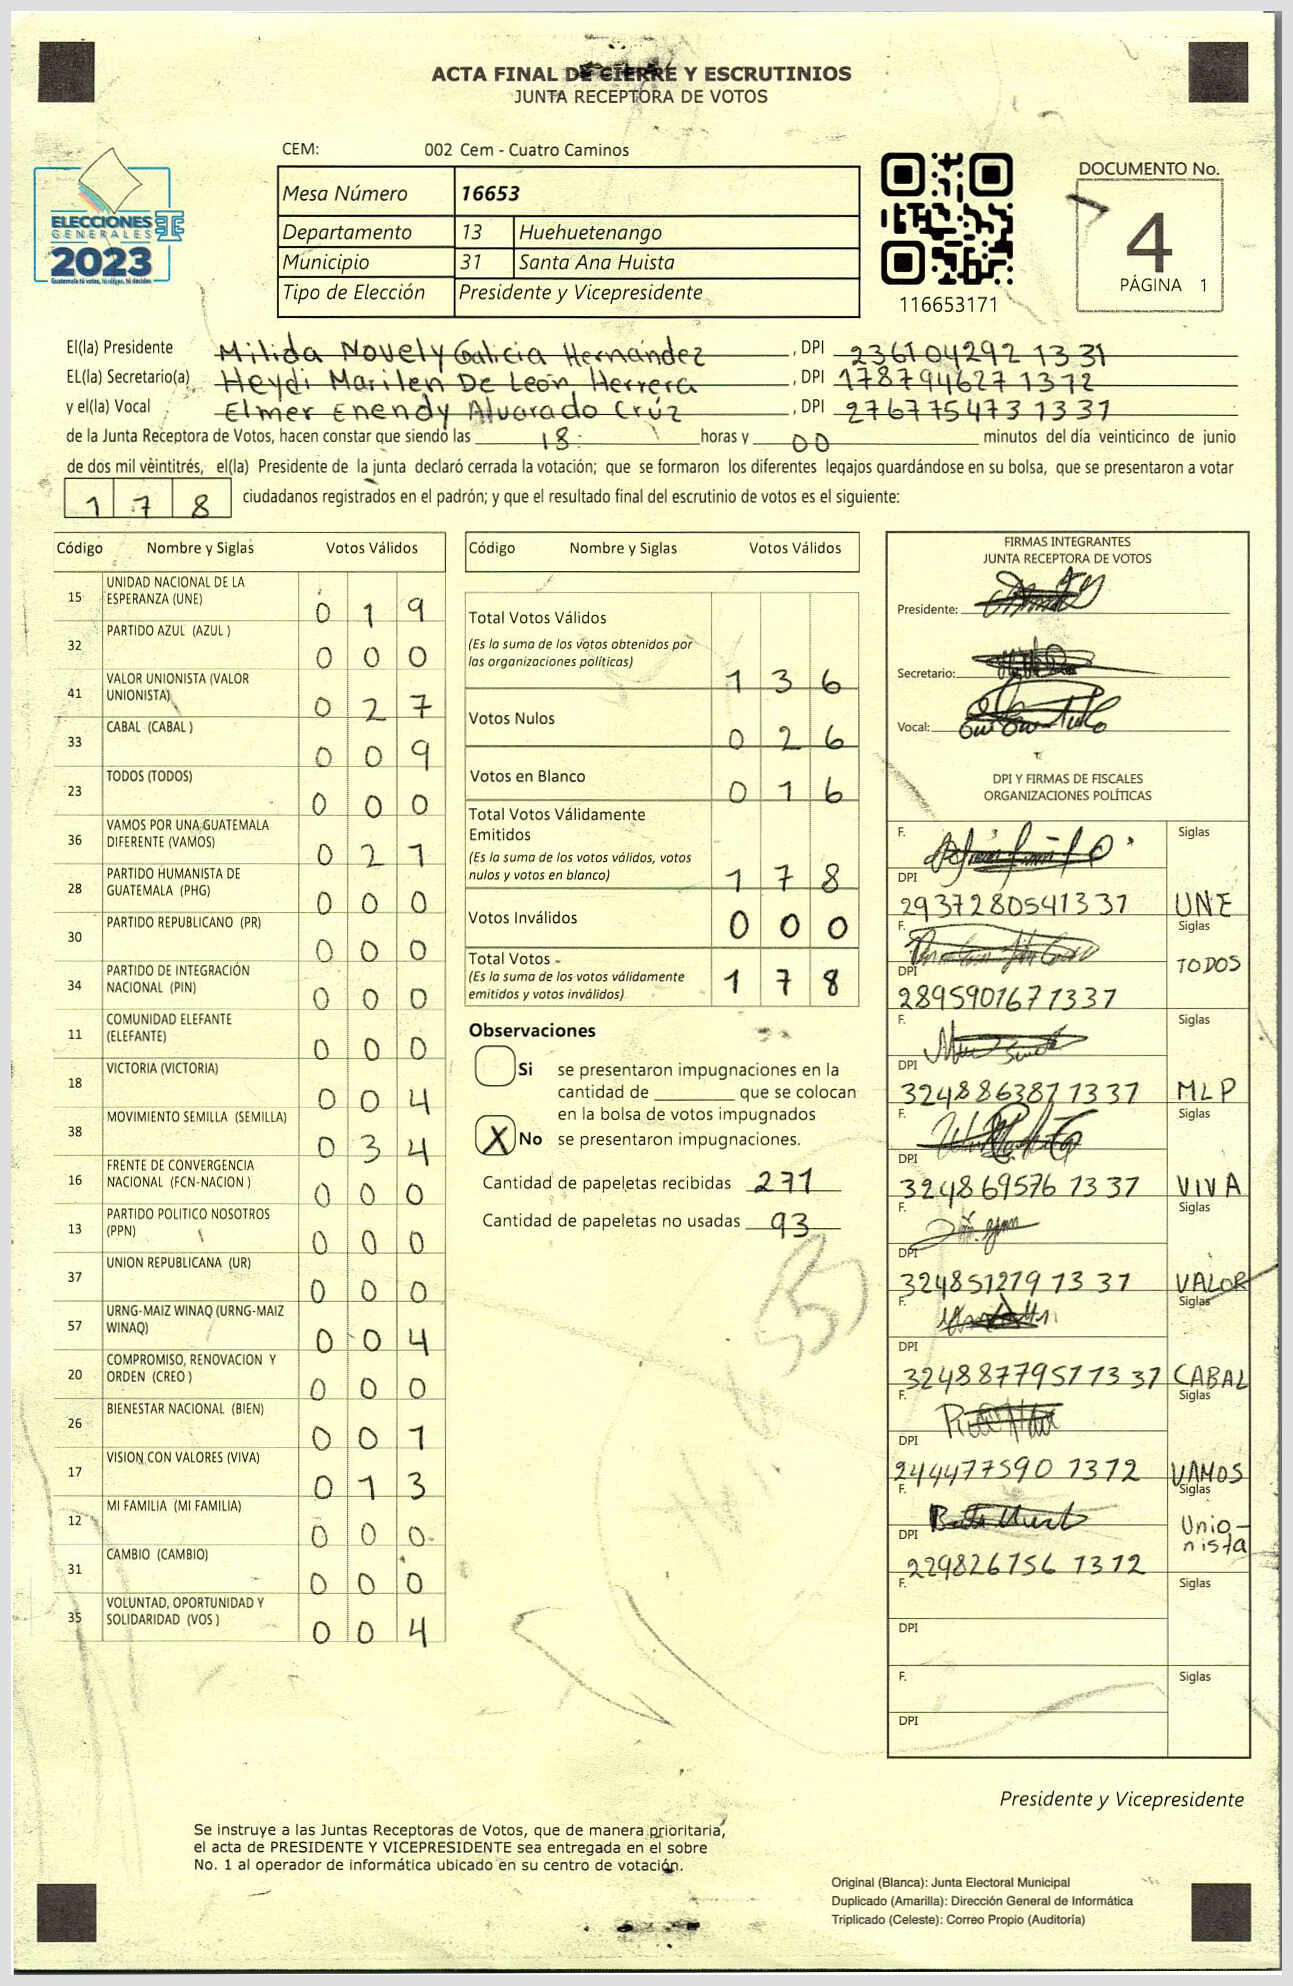 ACTA FINAL DE CIERRE Y ESCRUTINIOS
JUNTA RECEPTORA DE VOTOS
CEM: 002 Cem - Cuatro Caminos
ELECCIONES
GENERALES
2023
Guatemala tú votas, tú eliges, tú decides
Mesa Número 16653
Departamento 13 Huehuetenango
Municipio 31 Santa Ana Huista
Tipo de Elección Presidente y Vicepresidente
116653171
DOCUMENTO No.
4
PÁGINA 1
El(la) Presidente Milida Novely Galicia Hernández, DPI 236104292 1331
EL(la) Secretario(a) Heydi Marilen De León Herrera, DPI 178794627 1312
y el(la) Vocal Elmer Enendy Alvarado Crúz, DPI 276775473 1331
de la Junta Receptora de Votos, hacen constar que siendo las 18 horas y 00 minutos del día veinticinco de junio
de dos mil veintitrés, el(la) Presidente de la junta declaró cerrada la votación; que se formaron los diferentes legajos guardándose en su bolsa, que se presentaron a votar
178 ciudadanos registrados en el padrón; y que el resultado final del escrutinio de votos es el siguiente:
Código Nombre y Siglas Votos Válidos
15 UNIDAD NACIONAL DE LA ESPERANZA (UNE) 0 1 9
32 PARTIDO AZUL (AZUL ) 0 0 0
41 VALOR UNIONISTA (VALOR UNIONISTA) 0 2 7
33 CABAL (CABAL ) 0 0 9
23 TODOS (TODOS) 0 0 0
36 VAMOS POR UNA GUATEMALA DIFERENTE (VAMOS) 0 2 1
28 PARTIDO HUMANISTA DE GUATEMALA (PHG) 0 0 0
30 PARTIDO REPUBLICANO (PR) 0 0 0
34 PARTIDO DE INTEGRACIÓN NACIONAL (PIN) 0 0 0
11 COMUNIDAD ELEFANTE (ELEFANTE) 0 0 0
18 VICTORIA (VICTORIA) 0 0 4
38 MOVIMIENTO SEMILLA (SEMILLA) 0 3 4
16 FRENTE DE CONVERGENCIA NACIONAL (FCN-NACION ) 0 0 0
13 PARTIDO POLITICO NOSOTROS (PPN) 0 0 0
37 UNION REPUBLICANA (UR) 0 0 0
57 URNG-MAIZ WINAQ (URNG-MAIZ WINAQ) 0 0 4
20 COMPROMISO, RENOVACION Y ORDEN (CREO ) 0 0 0
26 BIENESTAR NACIONAL (BIEN) 0 0 1
17 VISION CON VALORES (VIVA) 0 1 3
12 MI FAMILIA (MI FAMILIA) 0 0 0
31 CAMBIO (CAMBIO) 0 0 0
35 VOLUNTAD, OPORTUNIDAD Y SOLIDARIDAD (VOS ) 0 0 4
Código Nombre y Siglas Votos Válidos
Total Votos Válidos
(Es la suma de los votos obtenidos por
las organizaciones políticas) 1 3 6
Votos Nulos 0 2 6
Votos en Blanco 0 1 6
Total Votos Válidamente
Emitidos
(Es la suma de los votos válidos, votos
nulos y votos en blanco) 1 7 8
Votos Inválidos 0 0 0
Total Votos
(Es la suma de los votos válidamente
emitidos y votos inválidos) 1 7 8
Observaciones
Si se presentaron impugnaciones en la
cantidad de ________ que se colocan
en la bolsa de votos impugnados
X No se presentaron impugnaciones.
Cantidad de papeletas recibidas 271
Cantidad de papeletas no usadas 93
FIRMAS INTEGRANTES
JUNTA RECEPTORA DE VOTOS
Presidente:
Secretario:
Vocal:
DPI Y FIRMAS DE FISCALES
ORGANIZACIONES POLÍTICAS
F. Siglas
DPI
2937280541331 UNE
F. Siglas
DPI TODOS
2895901671331
F. Siglas
DPI
324886387 1331 MLP
F. Siglas
DPI
324869576 1331 VIVA
F. Siglas
DPI
324851279 1331 VALOR
F. Siglas
DPI
324887795 1331 CABAL
F. Siglas
DPI
244477590 1312 VAMOS
F. Siglas
DPI Unio-
nista
229826156 1312
F. Siglas
DPI
F. Siglas
DPI
Presidente y Vicepresidente
Se instruye a las Juntas Receptoras de Votos, que de manera prioritaria,
el acta de PRESIDENTE Y VICEPRESIDENTE sea entregada en el sobre
No. 1 al operador de informática ubicado en su centro de votación.
Original (Blanca): Junta Electoral Municipal
Duplicado (Amarilla): Dirección General de Informática
Triplicado (Celeste): Correo Propio (Auditoría)